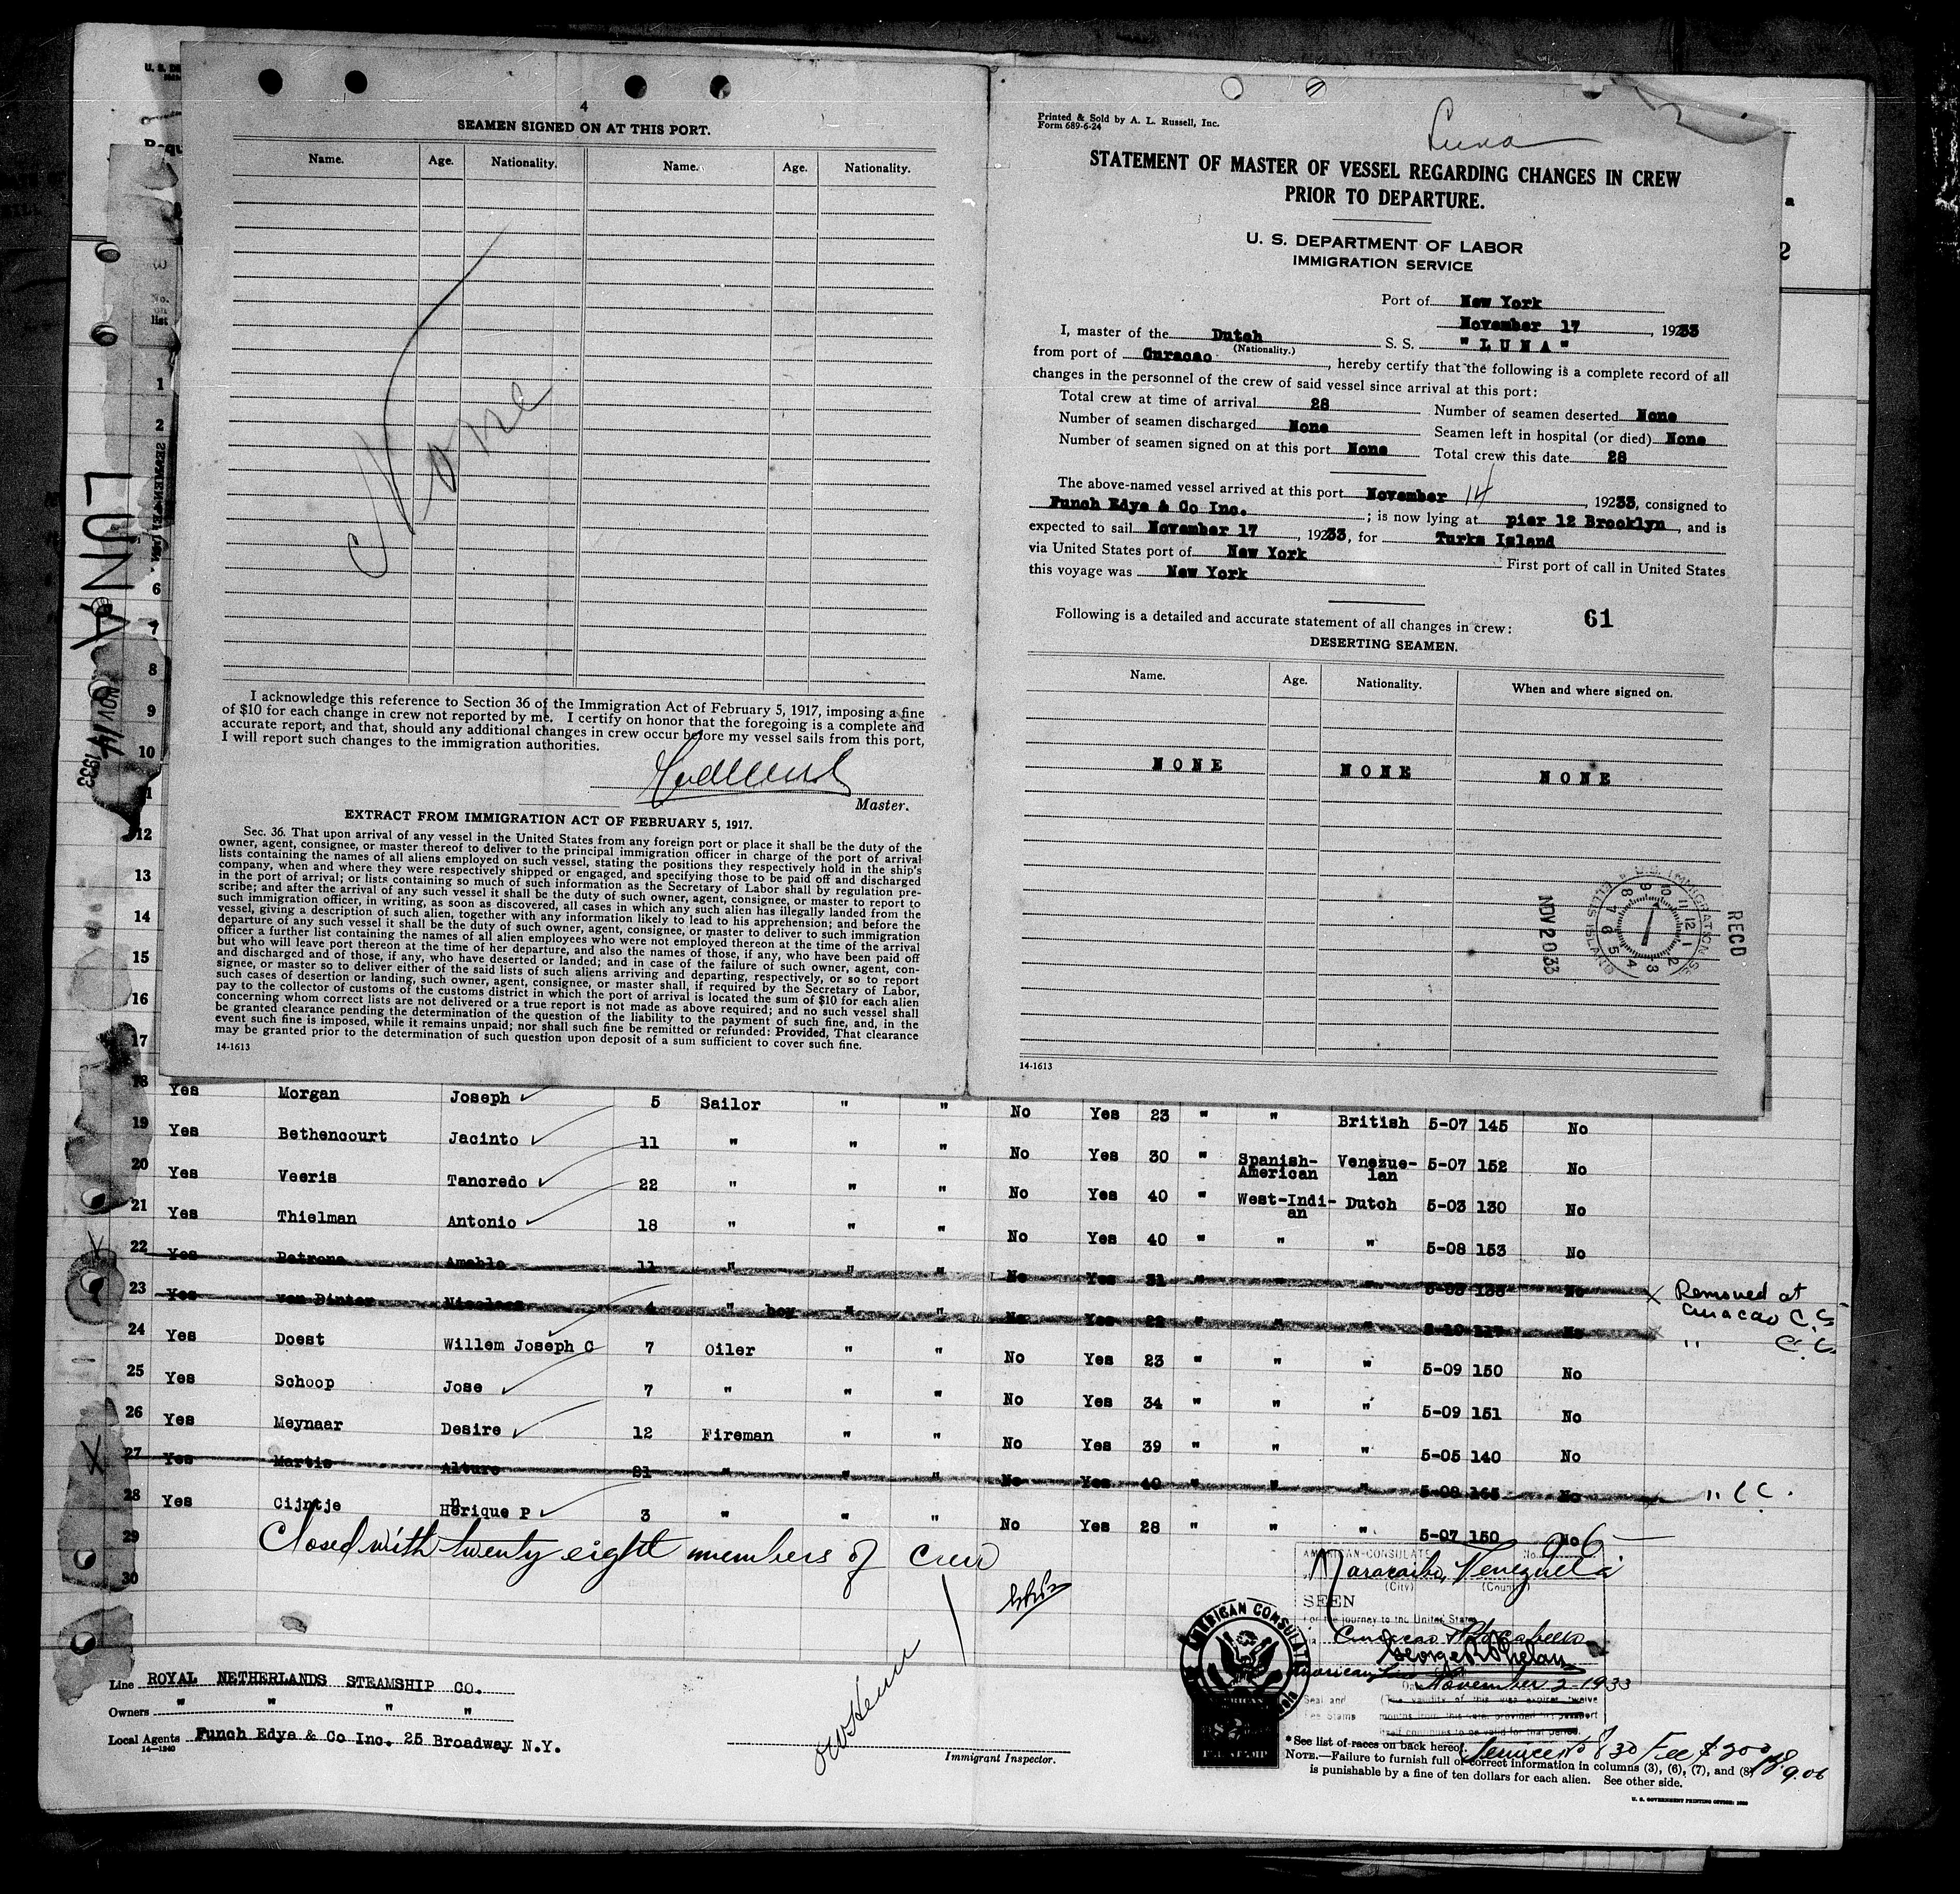 4
SEAMEN SIGNED ON AT THIS PORT.
Name. Age. Nationality. Name. Age. Nationality.
None
I acknowledge this reference to Section 36 of the Immigration Act of February 5, 1917, imposing a fine
of $10 for each change in crew not reported by me. I certify on honor that the foregoing is a complete and
accurate report, and that, should any additional changes in crew occur before my vessel sails from this port,
I will report such changes to the immigration authorities.
Master.
EXTRACT FROM IMMIGRATION ACT OF FEBRUARY 5, 1917.
Sec. 36. That upon arrival of any vessel in the United States from any foreign port or place it shall be the duty of the
owner, agent, consignee, or master thereof to deliver to the principal immigration officer in charge of the port of arrival
lists containing the names of all aliens employed on such vessel, stating the positions they respectively hold in the ship's
company, when and where they were respectively shipped or engaged, and specifying those to be paid off and discharged
in the port of arrival; or lists containing so much of such information as the Secretary of Labor shall by regulation pre-
scribe; and after the arrival of any such vessel it shall be the duty of such owner, agent, consignee, or master to report to
such immigration officer, in writing, as soon as discovered, all cases in which any such alien has illegally landed from the
vessel, giving a description of such alien, together with any information likely to lead to his apprehension; and before the
departure of any such vessel it shall be the duty of such owner, agent, consignee, or master to deliver to such immigration
officer a further list containing the names of all alien employees who were not employed thereon at the time of the arrival
but who will leave port thereon at the time of her departure, and also the names of those, if any, who have been paid off
and discharged and of those, if any, who have deserted or landed; and in case of the failure of such owner, agent, con-
signee, or master so to deliver either of the said lists of such aliens arriving and departing, respectively, or so to report
such cases of desertion or landing, such owner, agent, consignee, or master shall, if required by the Secretary of Labor,
pay to the collector of customs of the customs district in which the port of arrival is located the sum of $10 for each alien
concerning whom correct lists are not delivered or a true report is not made as above required; and no such vessel shall
be granted clearance pending the determination of the question of the liability to the payment of such fine, and, in the
event such fine is imposed, while it remains unpaid; nor shall such fine be remitted or refunded: Provided, That clearance
may be granted prior to the determination of such question upon deposit of a sum sufficient to cover such fine.
14-1613
Printed & Sold by A. L. Russell, Inc.
Form 689-6-24
Luna
STATEMENT OF MASTER OF VESSEL REGARDING CHANGES IN CREW
PRIOR TO DEPARTURE.
U. S. DEPARTMENT OF LABOR
IMMIGRATION SERVICE
Port of New York
November 17, 1933
I, master of the Dutch S. S. "LUNA"
(Nationality.)
from port of Curacao, hereby certify that the following is a complete record of all
changes in the personnel of the crew of said vessel since arrival at this port:
Total crew at time of arrival 28 Number of seamen deserted None
Number of seamen discharged None Seamen left in hospital (or died) None
Number of seamen signed on at this port None Total crew this date 28
The above-named vessel arrived at this port November 14, 1933, consigned to
Funch Edye & Co Inc.; is now lying at pier 12 Brooklyn, and is
expected to sail November 17, 1933, for Turks Island
via United States port of New York First port of call in United States
this voyage was New York
61
Following is a detailed and accurate statement of all changes in crew:
DESERTING SEAMEN.
Name. Age. Nationality. When and where signed on.
NONE NONE NONE
RECD
NOV 20 33
14-1613
LUNA
NOV 14 1933
1
2
6
7
8
9
10
12
13
14
15
16
17
18 Yes Morgan Joseph 5 Sailor " " No Yes 23 " " British 5-07 145 No
19 Yes Bethencourt Jacinto 11 " " " No Yes 30 " Spanish-American Venezue-lan 5-07 152 No
20 Yes Veeris Tancredo 22 " " " No Yes 40 " West-Indi-an Dutch 5-03 130 No
21 Yes Thielman Antonio 18 " " " No Yes 40 " " " 5-08 153 No
22 Yes Petrona Amablo 11 " " " No Yes 31 " " No X Removed at
Curacao C.G
23 Yes van Dinter Nicolaas 4 " boy " " No Yes 22 " " " No X "
24 Yes Doest Willem Joseph C 7 Oiler " " No Yes 23 " " " 5-09 150 No
25 Yes Schoop Jose 7 " " " No Yes 34 " " " 5-09 151 No
26 Yes Meynaar Desire 12 Fireman " " No Yes 39 " " " 5-05 140 No
27 Yes Martis Alturo 21 " " " No Yes 40 " " " 5-08 165 No "
28 Yes Cijntje Henrique P 3 " " " No Yes 28 " " " 5-07 150 No
29 Closed with twenty eight members of crew
30
AMERICAN CONSULATE
Maracaibo, Venezuela
(City) (Country)
SEEN
For the journey to the United States
George R Phelan
November 2-1933
AMERICAN CONSULATE
Line ROYAL NETHERLANDS STEAMSHIP CO.
Owners " " " "
Local Agents Funch Edye & Co Inc. 25 Broadway N.Y.
14-1240
Immigrant Inspector.
Service No 830 Fee $2.00
* See list of races on back hereof.
NOTE.—Failure to furnish full or correct information in columns (3), (6), (7), and (8)
is punishable by a fine of ten dollars for each alien. See other side.
U. S. GOVERNMENT PRINTING OFFICE